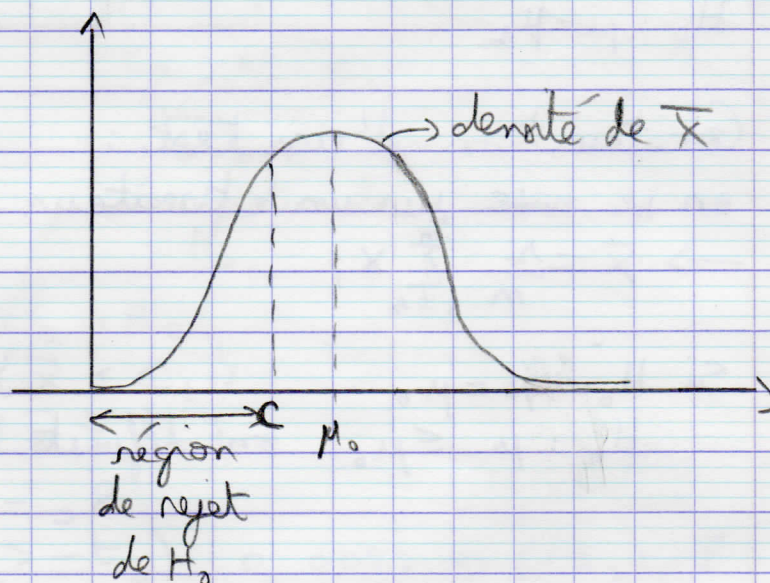 densité de X̄
C
μ₀
région
de rejet
de H₀